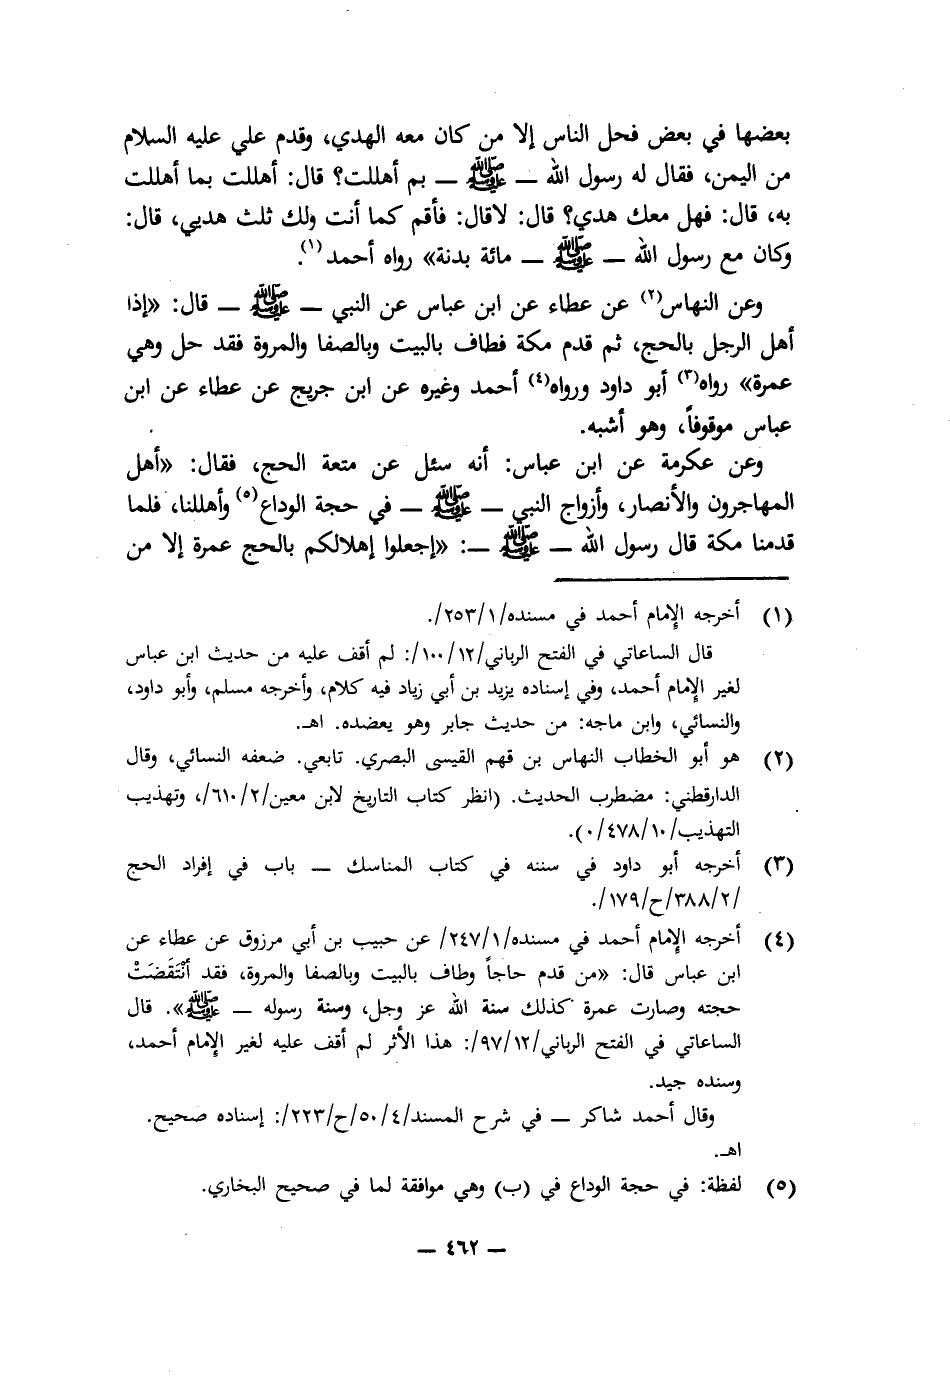 بعضها في بعض فحل الناس إلا من كان معه الهدي، وقدم علي عليه السلام
من اليمن، فقال له رسول الله — ﷺ — بم أهللت؟ قال: أهللت بما أهللت
به، قال: فهل معك هدي؟ قال: لاقال: فأقم كما أنت ولك ثلث هديي، قال:
وكان مع رسول الله — ﷺ — مائة بدنة» رواه أحمد(١).
وعن النهاس(٢) عن عطاء عن ابن عباس عن النبي — ﷺ — قال: «إذا
أهل الرجل بالحج، ثم قدم مكة فطاف بالبيت وبالصفا والمروة فقد حل وهي
عمرة» رواه(٣) أبو داود ورواه(٤) أحمد وغيره عن ابن جريج عن عطاء عن ابن
عباس موقوفاً، وهو أشبه.
وعن عكرمة عن ابن عباس: أنه سئل عن متعة الحج، فقال: «أهل
المهاجرون والأنصار، وأزواج النبي — ﷺ — في حجة الوداع(٥) وأهللنا، فلما
قدمنا مكة قال رسول الله — ﷺ —: «إجعلوا إهلالكم بالحج عمرة إلا من
(١) أخرجه الإمام أحمد في مسنده/٢٥٣/١/.
قال الساعاتي في الفتح الرباني/١٠٠/١٢/: لم أقف عليه من حديث ابن عباس
لغير الإمام أحمد، وفي إسناده يزيد بن أبي زياد فيه كلام، وأخرجه مسلم، وأبو داود،
والنسائي، وابن ماجه: من حديث جابر وهو يعضده. اهـ.
(٢) هو أبو الخطاب النهاس بن قهم القيسى البصري. تابعي. ضعفه النسائي، وقال
الدارقطني: مضطرب الحديث. (انظر كتاب التاريخ لابن معين/٦١٠/٢/، وتهذيب
التهذيب/٤٧٨/١٠/٠).
(٣) أخرجه أبو داود في سننه في كتاب المناسك — باب في إفراد الحج
/٣٨٨/٢/ح/١٧٩/.
(٤) أخرجه الإمام أحمد في مسنده/٢٤٧/١/ عن حبيب بن أبي مرزوق عن عطاء عن
ابن عباس قال: «من قدم حاجاً وطاف بالبيت وبالصفا والمروة، فقد أنْتَقَضَتْ
حجته وصارت عمرة كذلك سنة الله عز وجل، وسنة رسوله — ﷺ». قال
الساعاتي في الفتح الرباني/٩٧/١٢/: هذا الأثر لم أقف عليه لغير الإمام أحمد،
وسنده جيد.
وقال أحمد شاكر — في شرح المسند/٥٠/٤/ح/٢٢٣/: إسناده صحيح.
اهـ.
(٥) لفظة: في حجة الوداع في (ب) وهي موافقة لما في صحيح البخاري.
— ٤٦٢ —